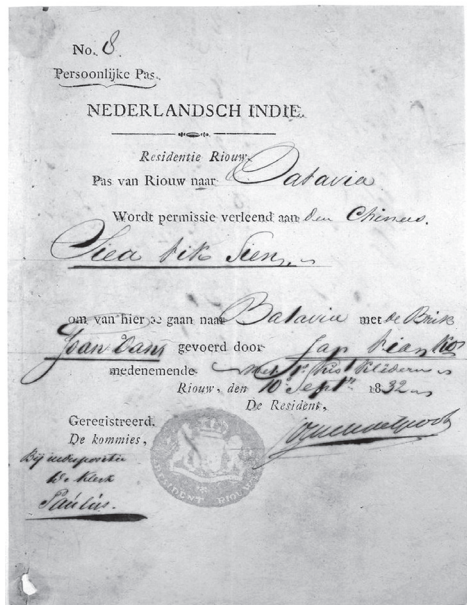 No. 8.
Persoonlijke Pas.
NEDERLANDSCH INDIE.
Residentie Riouw.
Pas van Riouw naar Batavia
Wordt permissie verleend aan den Chinees.
Tik Sien
om van hier te gaan naar Batavia met de Brik
gevoerd door
medenemende
Riouw, den 10 Sept. 1832
De Resident,
Geregistreerd.
De kommies,
Paulus.
RESIDENT RIOUW